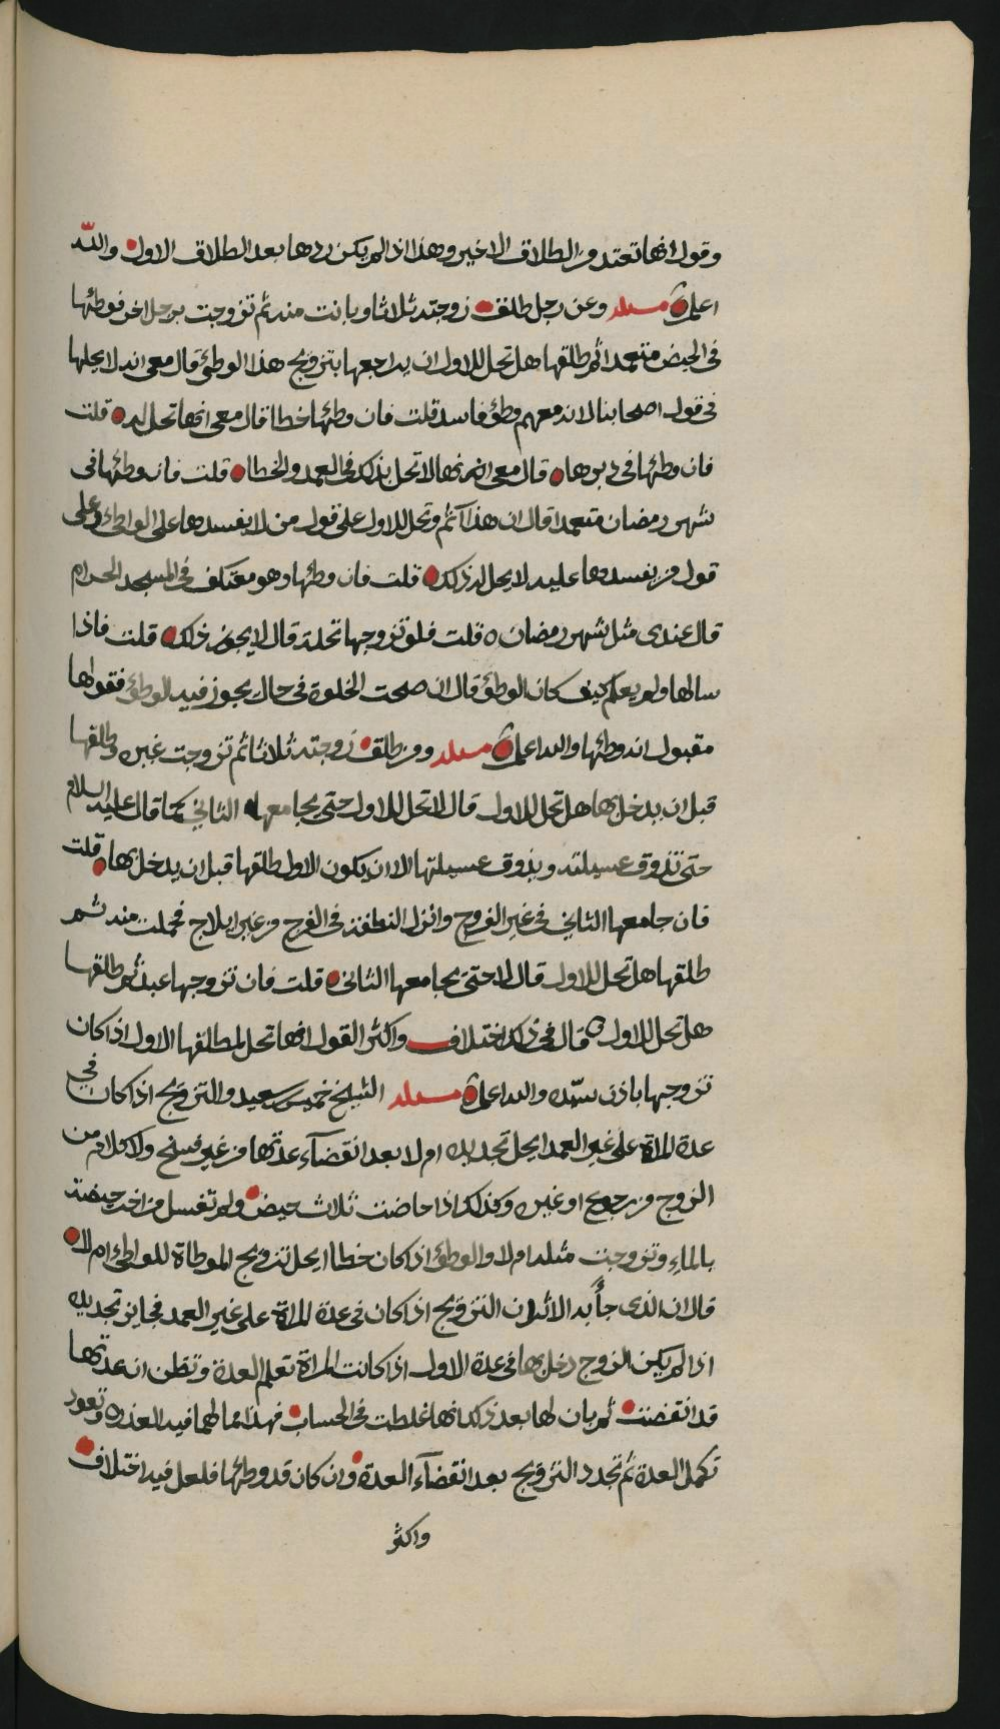 وقول انها تعتد من الطلاق الاخير وهذا اذا لم يكن ردها بعد الطلاق الاول والله
اعلم مسئلة وعن رجل طلق زوجته ثلاثا وبانت منه ثم تزوجت برجل اخر فوطئها
في الحيض متعمدا ثم طلقها هل تحل للاول ان يراجعها بتزويج هذا الوطئ قال معي انه لا يحلها
في قول اصحابنا لانه معهم وطئ فاسد قلت فان وطئها خطا قال معي انها تحل له قلت
فان وطئها في دبرها قال معي انها لا تحل بذلك في العمد والخطا قلت فان وطئها في
شهر رمضان متعمدا قال ان هذا آثم وتحل للاول على قول من لا يفسدها على الواطئ وعلى
قول من يفسدها عليه لا يحل له ذلك قلت فان وطئها وهو معتكف في المسجد الحرام
قال عندي مثل شهر رمضان ه قلت فلو تزوجها تحلة قال لا يجوز ذلك قلت فاذا
سالها ولم يعلم كيف كان الوطئ قال ان صحت الخلوة في حال يجوز فيه الوطئ فقولها
مقبول انه وطئها والله اعلم مسئلة ومن طلق زوجته ثلاثا ثم تزوجت غيره وطلقها
قبل ان يدخل بها هل تحل للاول قال لا تحل للاول حتى يجامعها الثاني كما قال عليه السلام
حتى تذوق عسيلته ويذوق عسيلتها الا ان يكون الاول طلقها قبل ان يدخل بها قلت
فان جامعها الثاني في غير الفروج وانزل النطفة في الفرج من غير ايلاج فحملت منه ثم
طلقها هل تحل للاول قال لا حتى يجامعها الثاني قلت فان تزوجها عبد ثم طلقها
هل تحل للاول ه قال في ذلك اختلاف واكثر القول انها تحل لمطلقها الاول اذا كان
تزوجها باذن سيده والله اعلم مسئلة الشيخ خميس بن سعيد والتزويج اذا كان في
عدة المراة على غير العمد ايحل تجديده ام لا بعد انقضآء عدتها من غير فسخ ولا كلام من
الزوج من رجوع او غيره وكذلك اذا حاضت ثلاث حيض ولم تغسل من اخر حيضة
بالماء وتزوجت مثله ام لا والوطئ اذا كان خطا ايحل تزويج الموطاة للواطئ ام لا
قال ان الذي جآ به الاثر ان التزويج اذا كان في عدة المراة على غير العمد فجايز تجديده
اذا لم يكن الزوج دخل بها في عدة الاول اذا كانت المراة تعلم العدة وتظن ان عدتها
قد انقضت ثم بان لها بعد ذلك انها غلطت في الحساب فهذا مما لهما فيه العذر ه وتعود
تكمل العدة ثم تجدد التزويج بعد انقضآء العدة وان كان قد وطئها فلعل فيه اختلاف
واكثر